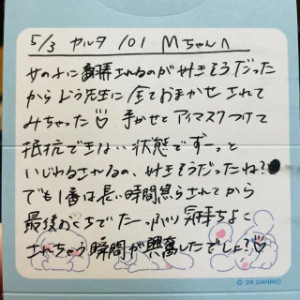 5/3 カルタ 101 Mちゃんへ
女の子に翻弄されるのが好きそうだった
から 先生に全ておまかせされて
みちゃった♡ 手かせとアイマスクつけて
抵抗できない状態でずーっと
いじわるされるの、好きそうだったね?♡
でも1番は長い時間焦らされてから
最後おくちでたーっぷり気持ちよく
されちゃう瞬間が興奮したでしょ?♡
© '25 SANRIO